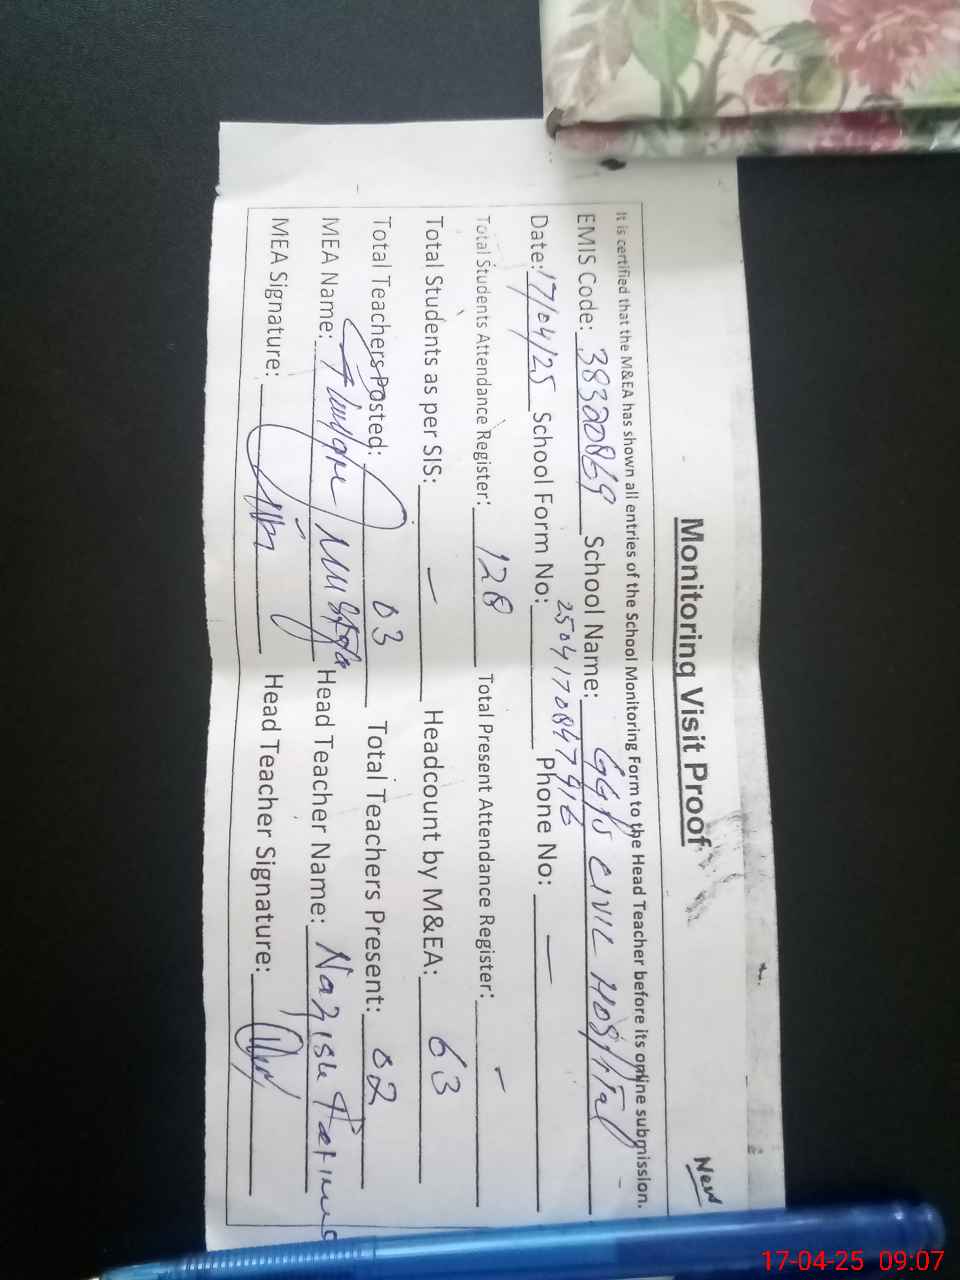 New
Monitoring Visit Proof
It is certified that the M&EA has shown all entries of the School Monitoring Form to the Head Teacher before its online submission.
EMIS Code: 38320869 School Name: GGPS CIVIL HOSPITAL
Date: 17/04/25 School Form No: 250417089 Phone No: —
Total Students Attendance Register: 128 Total Present Attendance Register: -
Total Students as per SIS: — Headcount by M&EA: 63
Total Teachers Posted: 03 Total Teachers Present: 02
MEA Name: Mustafa Head Teacher Name: Nazish Fatima
MEA Signature: Head Teacher Signature:
17-04-25 09:07